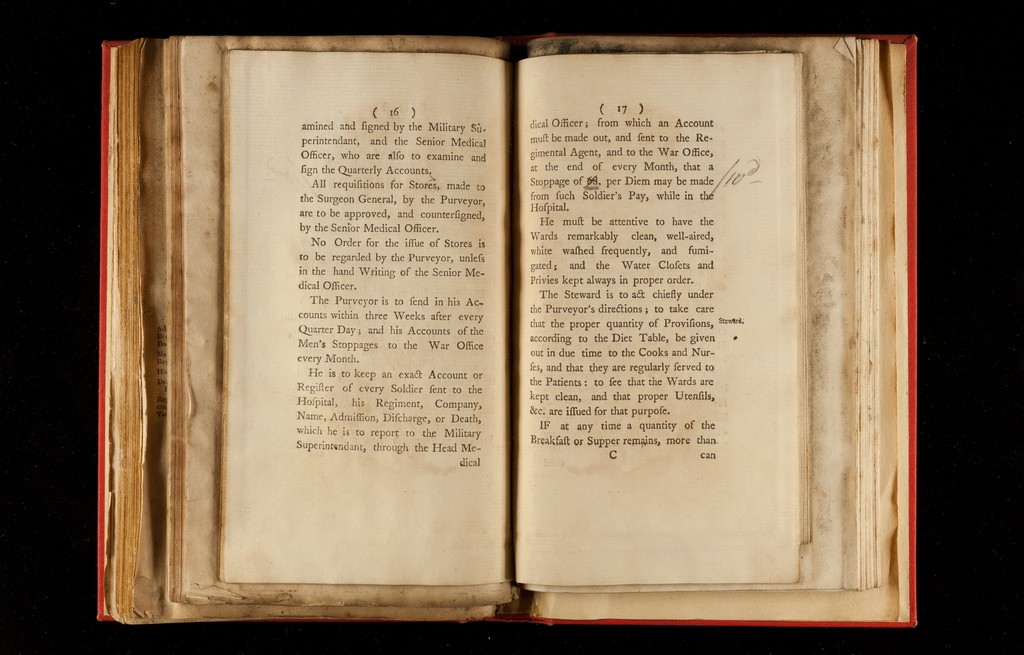 ( 16 )
amined and ſigned by the Military Su-
perintendant, and the Senior Medical
Officer, who are alſo to examine and
ſign the Quarterly Accounts.
All requiſitions for Stores, made to
the Surgeon General, by the Purveyor,
are to be approved, and counterſigned,
by the Senior Medical Officer.
No Order for the iſſue of Stores is
to be regarded by the Purveyor, unleſs
in the hand Writing of the Senior Me-
dical Officer.
The Purveyor is to ſend in his Ac-
counts within three Weeks after every
Quarter Day; and his Accounts of the
Men's Stoppages to the War Office
every Month.
He is to keep an exact Account or
Regiſter of every Soldier ſent to the
Hoſpital, his Regiment, Company,
Name, Admiſſion, Diſcharge, or Death,
which he is to report to the Military
Superintendant, through the Head Me-
dical
( 17 )
dical Officer; from which an Account
muſt be made out, and ſent to the Re-
gimental Agent, and to the War Office,
at the end of every Month, that a
Stoppage of per Diem may be made
/10d
from ſuch Soldier's Pay, while in the
Hoſpital.
He muſt be attentive to have the
Wards remarkably clean, well-aired,
white waſhed frequently, and fumi-
gated; and the Water Cloſets and
Privies kept always in proper order.
The Steward is to act chiefly under
the Purveyor's directions; to take care
that the proper quantity of Proviſions,
Steward.
according to the Diet Table, be given
out in due time to the Cooks and Nur-
ſes, and that they are regularly ſerved to
the Patients: to ſee that the Wards are
kept clean, and that proper Utenſils,
&c. are iſſued for that purpoſe.
IF at any time a quantity of the
Breakfaſt or Supper remains, more than
C can